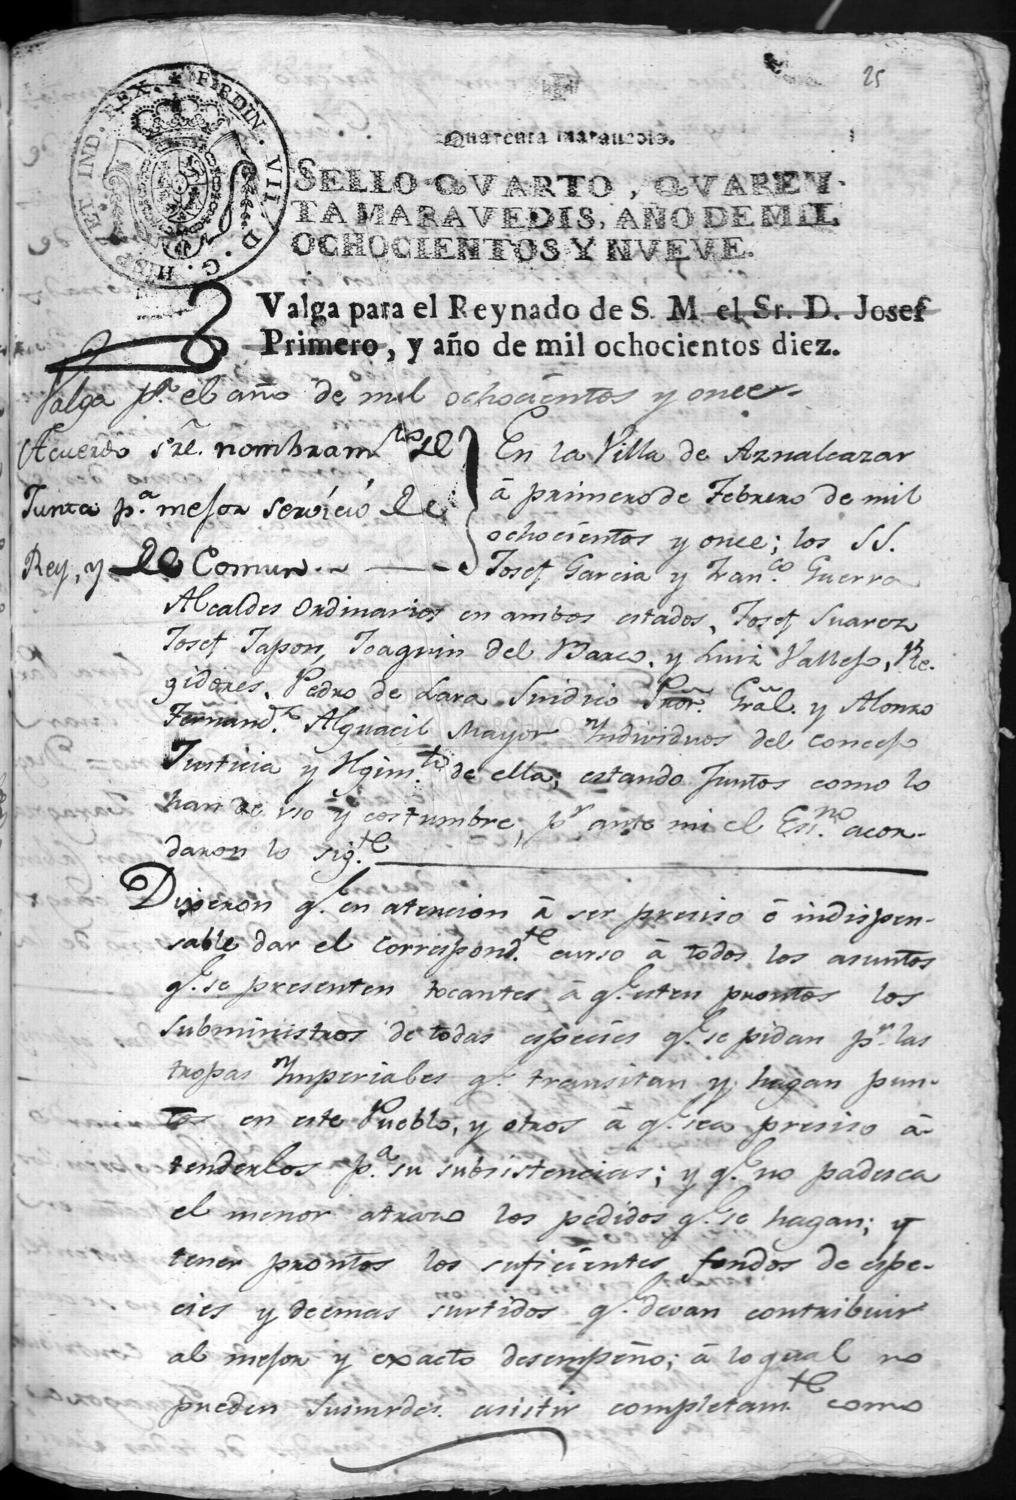 25
FERDIN. VII. D. G. HISP. ET IND. REX.
Quarenta maravedis.
SELLO QVARTO, QVAREN-
TA MARAVEDIS, AÑO DE MIL
OCHOCIENTOS Y NVEVE.
Valga para el Reynado de S. M. el Sr. D. Josef
Primero, y año de mil ochocientos diez.
Valga pª el año de mil ochocientos y once
Acuerdo sre. nombramto de
Junta pª mejor servicio de
Rey, y de Comun
En la Villa de Aznalcazar
â primero de Febrero de mil
ochocientos y once; los SS.
Josef Garcia y Franco Guerra
Alcaldes ordinarios en ambos estados, Josef Suarez
Josef Japon, Joaquin del Barco, y Luiz Vallejo, Re-
gidores, Pedro de Lara Sindico Pror. Gral. y Alonzo
Fernandz Alguacil Mayor Yndividuos del concejo
Justicia y Rgimto de ella; estando juntos como lo
han de uso y costumbre, pr ante mi el Essno acor-
daron lo sigte
Dixeron q.e en atencion â ser preciso ê indispen-
sable dar el correspondte curso â todos los asuntos
q.e se presenten tocantes â q.e esten prontos los
subministros de todas especies q.e se pidan pr las
tropas Ymperiales q.e transitan y hagan pun-
tos en este Pueblo, y otros â q.e sea preciso â-
tenderlos pª su subsistencias; y q.e no padesca
el menor atrazo los pedidos q.e se hagan; y
tener prontos los suficientes fondos de espe-
cies y deemas surtidos q.e devan contribuir
al mejor y exacto desempeño; â lo qual no
pueden Susmrdes. asistir completamte como